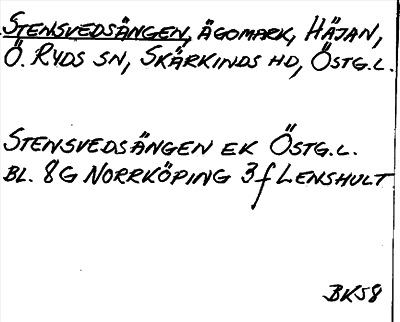 STENSVEDSÄNGEN, ÄGOMARK, HÄJAN,
Ö. RYDS SN, SKÄRKINDS HD, ÖSTG.L.
STENSVEDSÄNGEN EK ÖSTG.L.
BL. 8G NORRKÖPING 3f LENSHULT
BK58